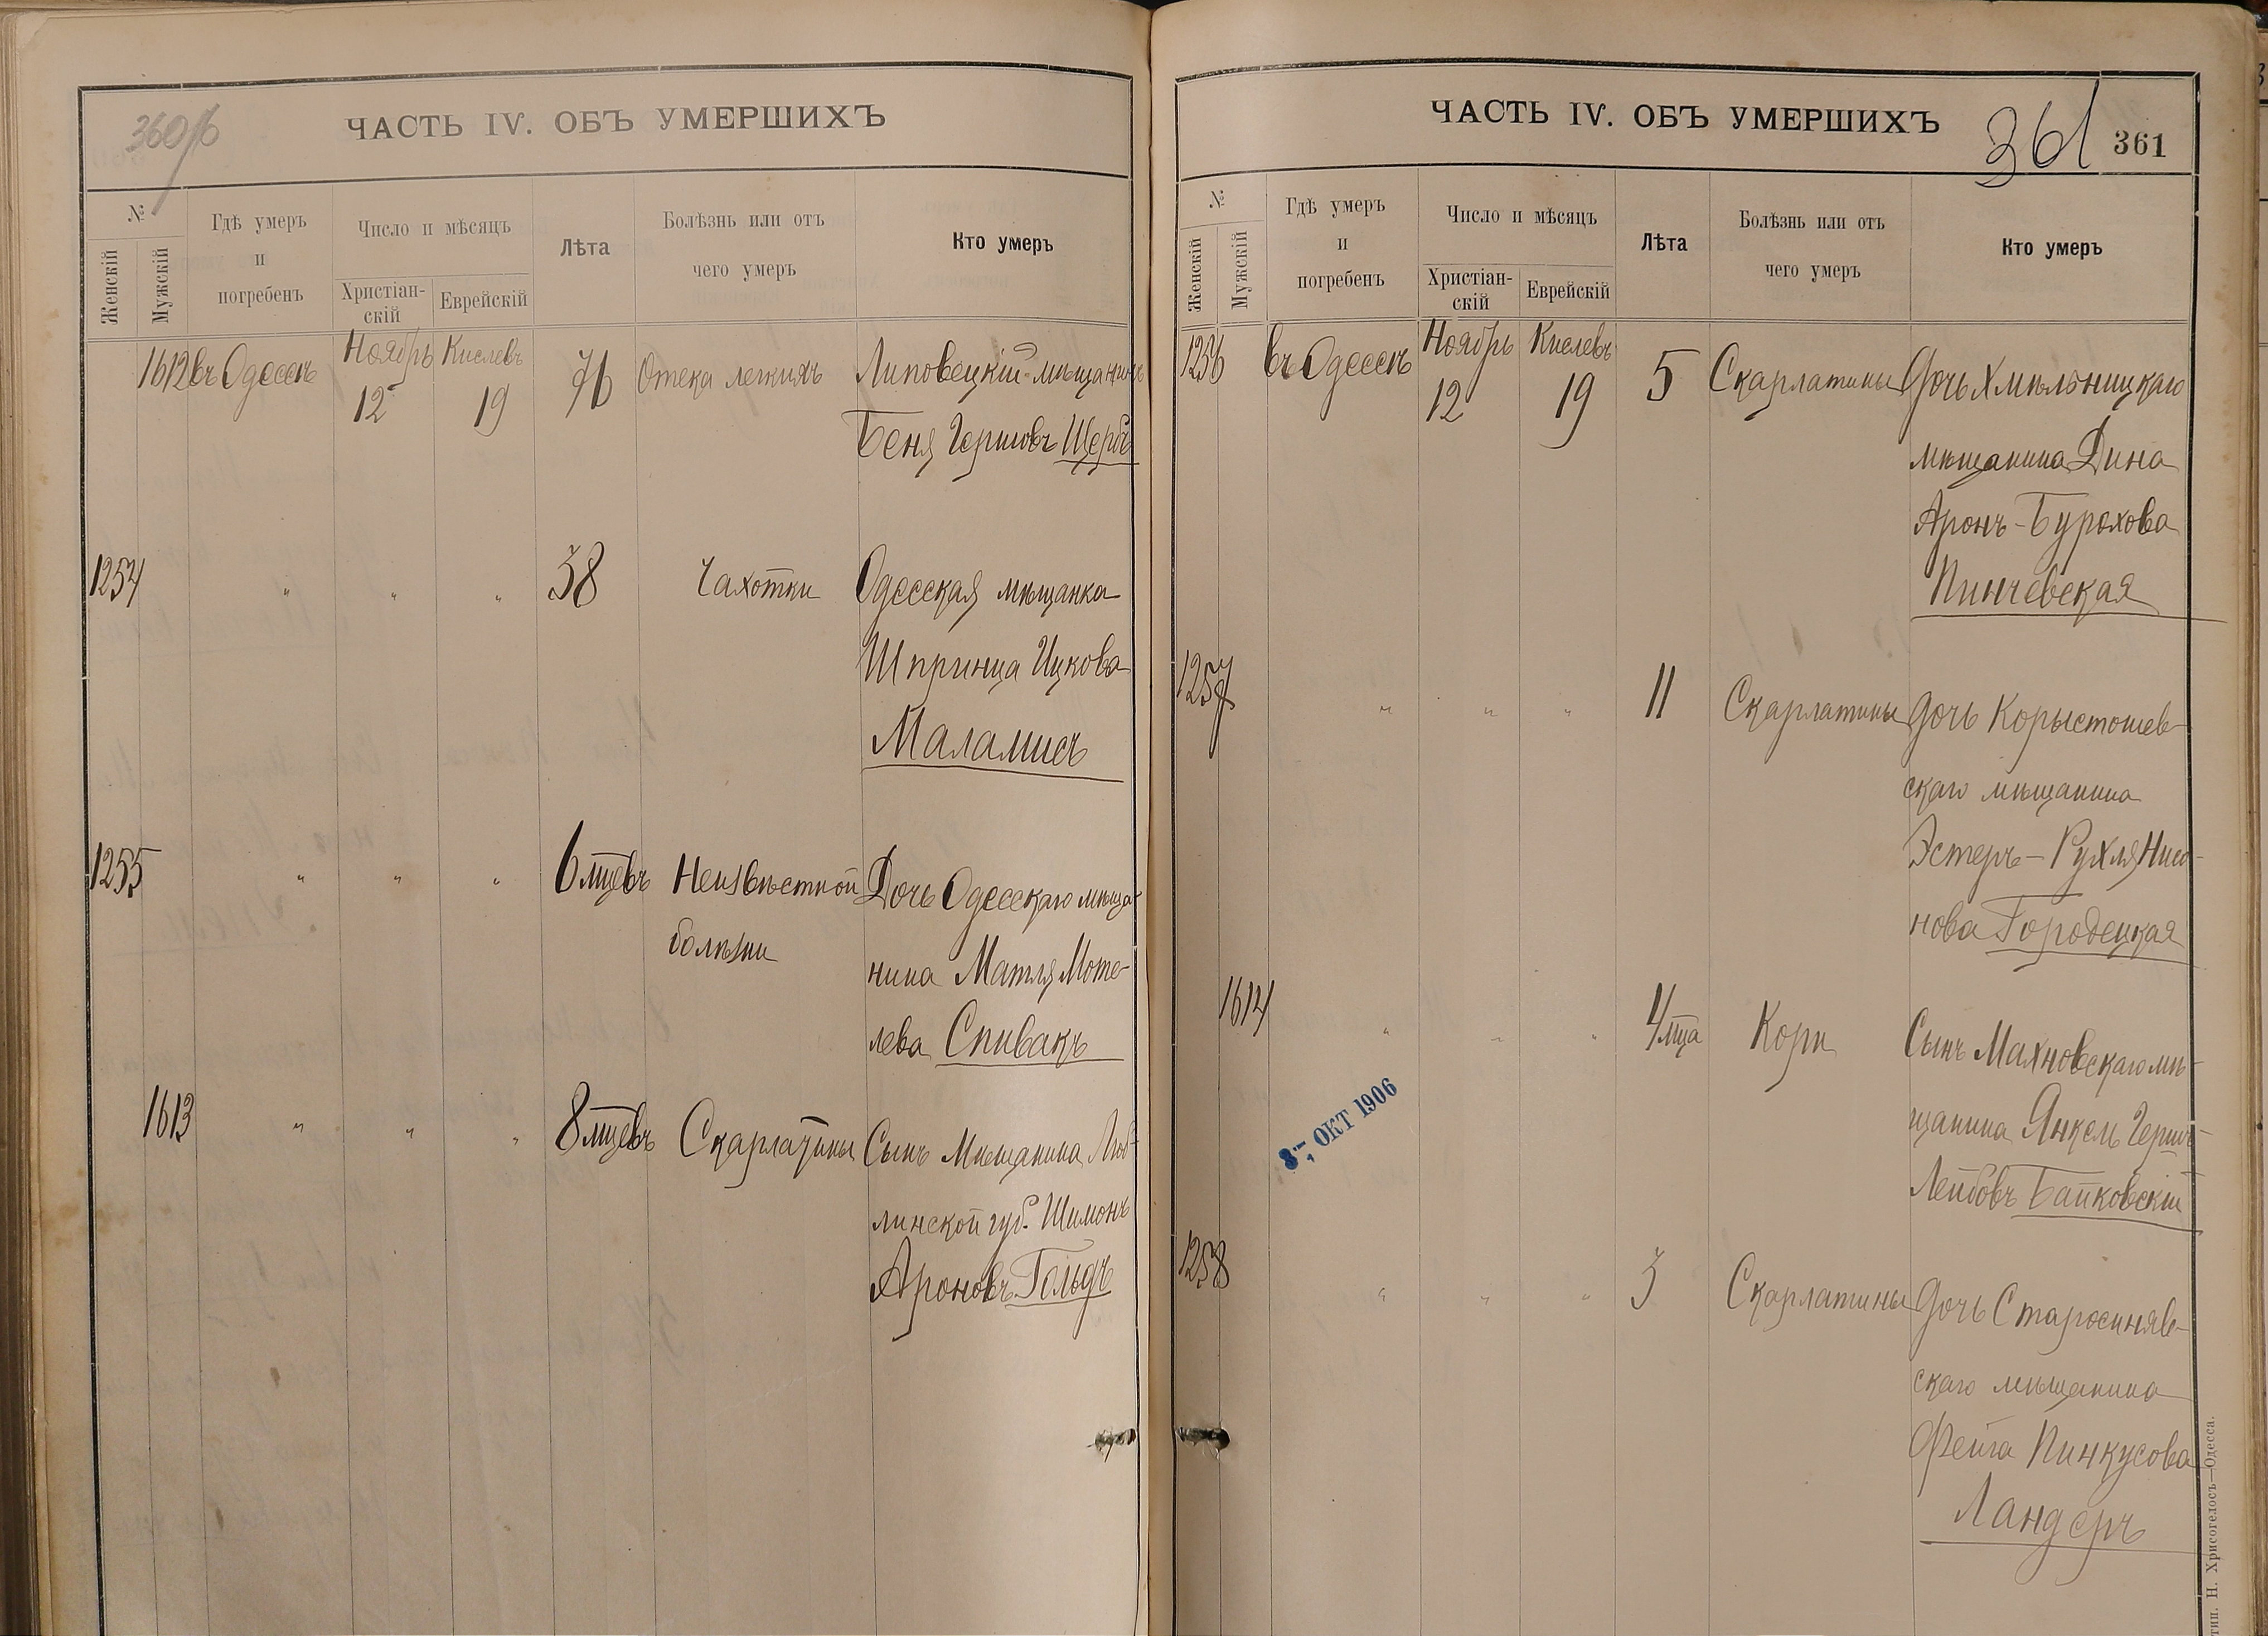 360/б
ЧАСТЬ IV. ОБЪ УМЕРШИХЪ
№
Женскій
Мужскій
Гдѣ умеръ
и
погребенъ
Число и мѣсяцъ
Христіан-
скій
Еврейскій
Лѣта
Болѣзнь или отъ
чего умеръ
Кто умеръ
1612 въ Одессѣ Ноябрь 12 Кислевъ 19 76 Отека легкихъ Липовецкій мѣщанинъ
Беня Гершовъ Щербъ
1254 " " " 38 Чахотки Одесская мѣщанка
Шпринца Ицкова
Маламисъ
1255 " " " 6 мцевъ Неизвѣстной Дочь Одесскаго мѣща-
болѣзни нина Матля Моте-
лева Спивакъ
1613 " " " 8 мцевъ Скарлатины Сынъ Мѣщанина Люб-
линской губ. Шимонъ
Ароновъ Гольдъ
ЧАСТЬ IV. ОБЪ УМЕРШИХЪ
361 361
№
Женскій
Мужскій
Гдѣ умеръ
и
погребенъ
Число и мѣсяцъ
Христіан-
скій
Еврейскій
Лѣта
Болѣзнь или отъ
чего умеръ
Кто умеръ
1256 въ Одессѣ Ноябрь 12 Кислевъ 19 5 Скарлатины Дочь Хмѣльницкаго
мѣщанина Дина
Аронъ-Бурохова
Пинчевская
1257 " " " 11 Скарлатины Дочь Корыстошев-
скаго мѣщанина
Эстеръ-Рухля Нисо-
нова Городецкая
1614 " " " 4 мца Кори Сынъ Махновскаго мѣ-
щанина Янкель Гершъ-
Лейбовъ Байковскій
8 - ОКТ 1906
1258 " " " 3 Скарлатины Дочь Старосиняв-
скаго мѣщанина
Фейга Пинкусова
Ландеръ
тип. Н. Хрисогелосъ—Одесса.